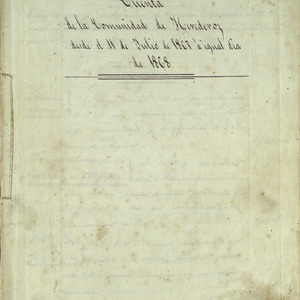 Cuenta
de la Comunidad de Herederos
desde el 11 de Julio de 1867 a igual dia
de 1868